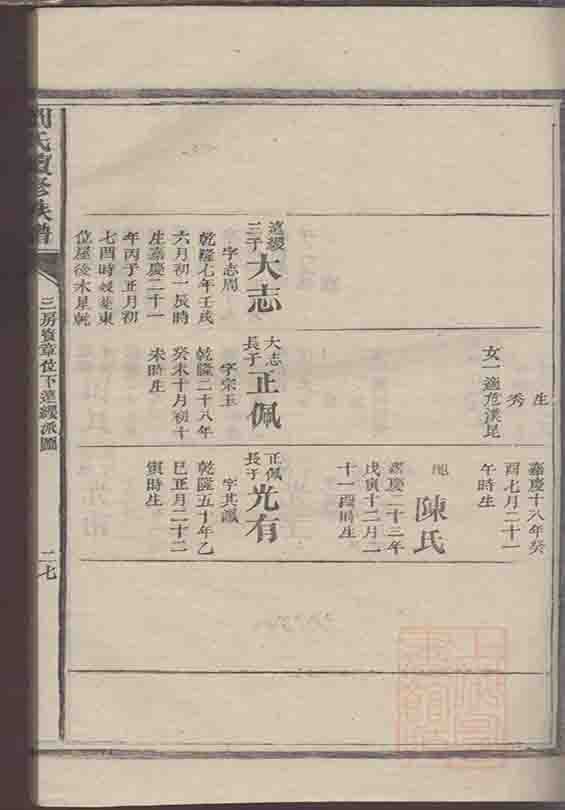 生
秀
女一適范漢昆
嘉慶十八年癸
酉七月二十一
午時生
配
陳氏
嘉慶二十三年
戊寅十二月二
十一酉時生
三子
大志
字志周
乾隆七年壬戌
六月初一辰時
生嘉慶二十一
年丙子正月初
七酉時歿葬東
位屋後木星乾
大志
長子
正佩
字宗玉
乾隆二十八年
癸未十月初十
未時生
正佩
長子
光有
乾隆五十年乙
巳正月二十二
寅時生
氏續修族譜
三房
章位下
派圖
二七